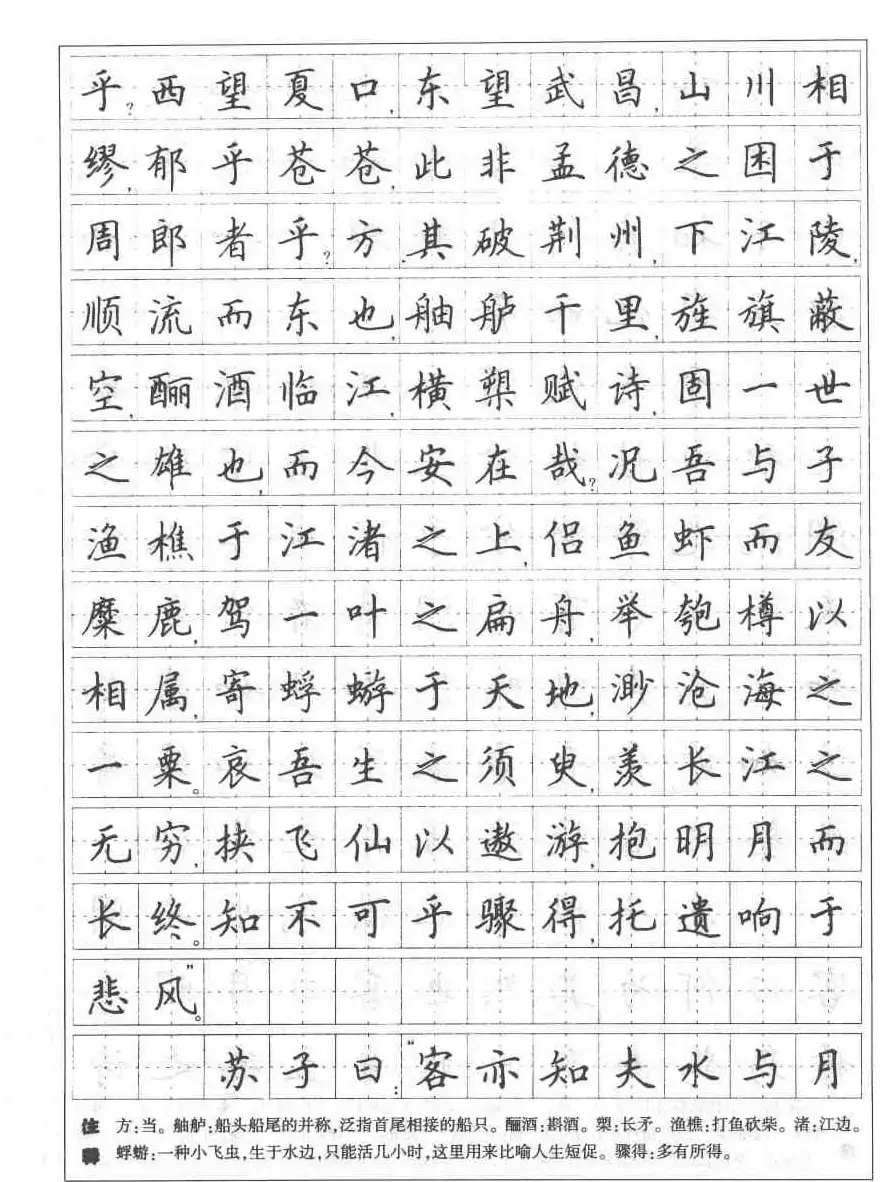 乎?西望夏口,东望武昌,山川相
缪,郁乎苍苍,此非孟德之困于
周郎者乎?方其破荆州,下江陵,
顺流而东也,舳舻千里,旌旗蔽
空,酾酒临江,横槊赋诗,固一世
之雄也,而今安在哉?况吾与子
渔樵于江渚之上,侣鱼虾而友
麋鹿,驾一叶之扁舟,举匏樽以
相属,寄蜉蝣于天地,渺沧海之
一粟。哀吾生之须臾,羡长江之
无穷,挟飞仙以遨游,抱明月而
长终。知不可乎骤得,托遗响于
悲风。”
苏子曰:“客亦知夫水与月
注 方:当。舳舻:船头船尾的并称,泛指首尾相接的船只。酾酒:斟酒。槊:长矛。渔樵:打鱼砍柴。渚:江边。
释 蜉蝣:一种小飞虫,生于水边,只能活几小时,这里用来比喻人生短促。骤得:多有所得。